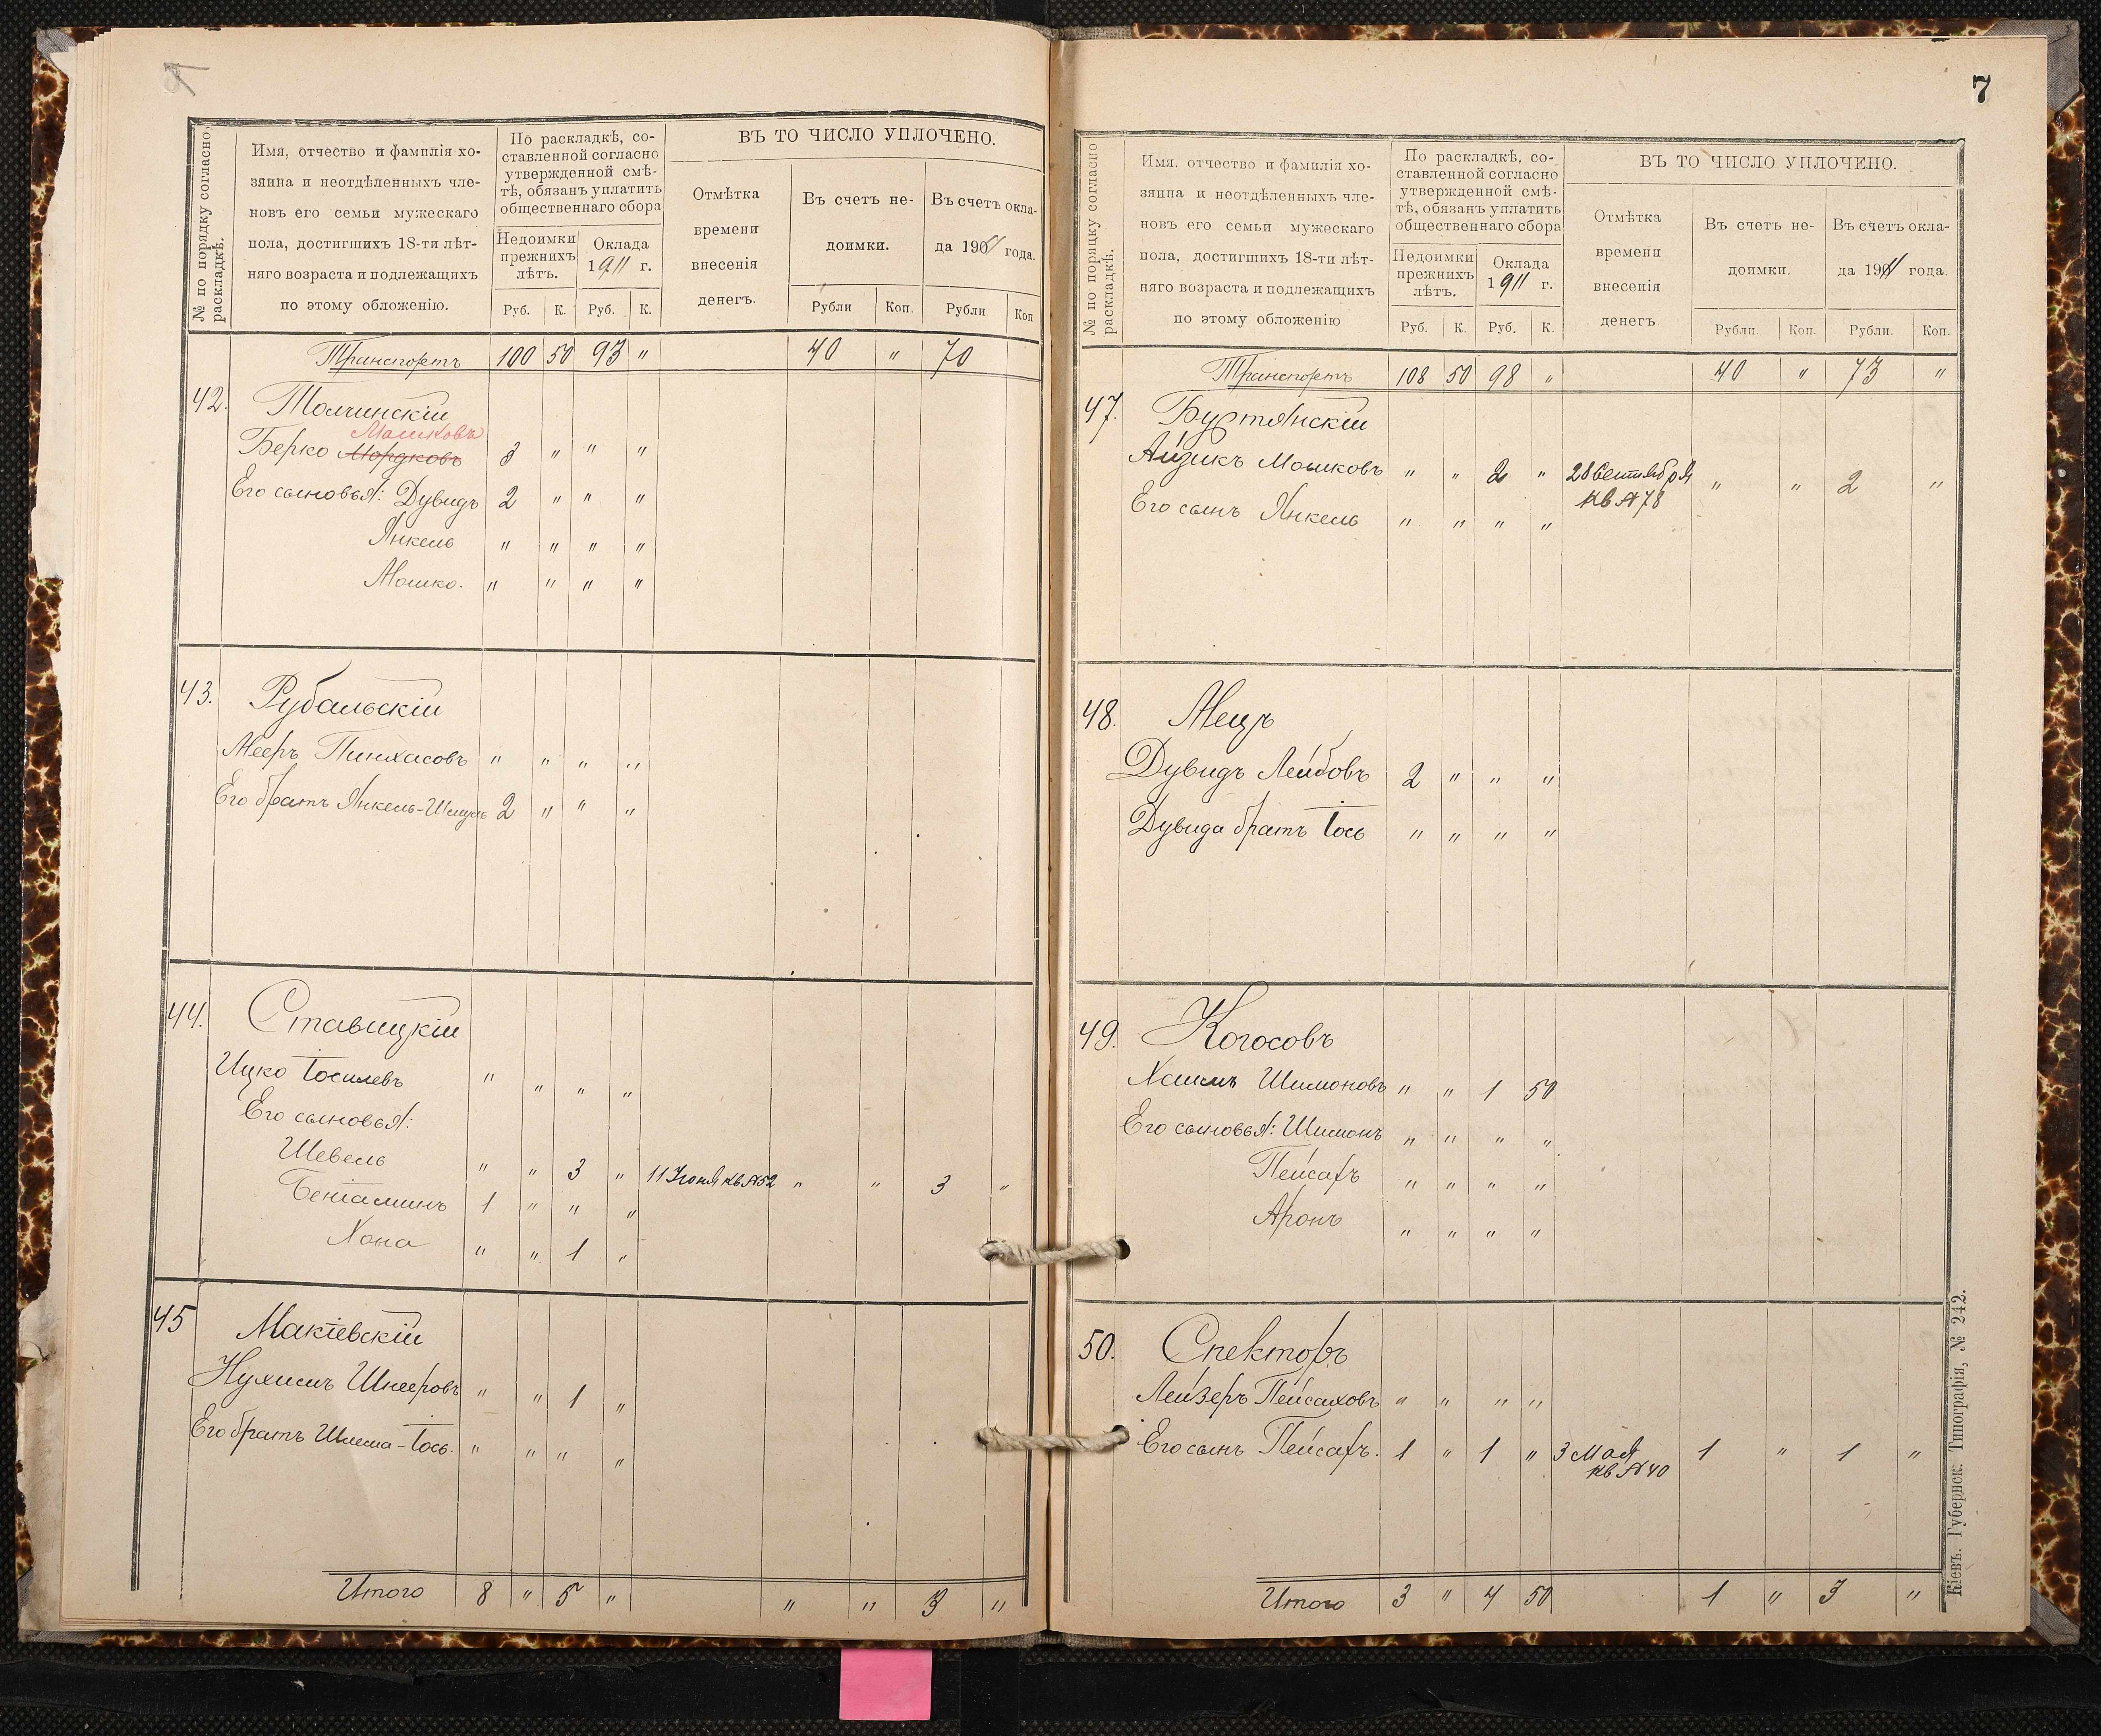 № по порядку согласно раскладкѣ.
Имя, отчество и фамилія хо-
зяина и неотдѣленныхъ чле-
новъ его семьи мужескаго
пола, достигшихъ 18-ти лѣт-
няго возраста и подлежащихъ
по этому обложенію.
По раскладкѣ, со-
ставленной согласно
утвержденной смѣ-
тѣ, обязанъ уплатить
общественнаго сбора
Недоимки
прежнихъ
лѣтъ.
Оклада
1911 г.
Руб. К. Руб. К.
ВЪ ТО ЧИСЛО УПЛОЧЕНО.
Отмѣтка
времени
внесенія
денегъ.
Въ счетъ не-
доимки.
Въ счетъ окла-
да 1911 года.
Рубли Коп. Рубли Коп
Транспортъ 100 50 93 " 40 " 70
42. Толчинскій
Мошковъ
Берко Мордковъ 3 " " "
Его сыновья: Дувидъ 2 " " "
Янкель " " " "
Мошко. " " " "
43. Рубальскій
Мееръ Пинхасовъ " " " "
Его братъ Янкель-Шмуль 2 " " "
44. Ставицкій
Ицко Іосилевъ " " " "
Его сыновья:
Шевель " " 3 " 11 Іюня кв №52 " " 3 "
Беніаминъ 1 " " "
Хона " " 1 "
45 Макіевскій
Нухимъ Шнееровъ " " 1 "
Его братъ Шлема-Іось. " " " "
Итого 8 " 5 " " " 3 "
7
№ по порядку согласно раскладкѣ.
Имя, отчество и фамилія хо-
зяина и неотдѣленныхъ чле-
новъ его семьи мужескаго
пола, достигшихъ 18-ти лѣт-
няго возраста и подлежащихъ
по этому обложенію
По раскладкѣ, со-
ставленной согласно
утвержденной смѣ-
тѣ, обязанъ уплатить
общественнаго сбора
Недоимки
прежнихъ
лѣтъ.
Оклада
1911 г.
Руб. К. Руб. К.
ВЪ ТО ЧИСЛО УПЛОЧЕНО.
Отмѣтка
времени
внесенія
денегъ
Въ счетъ не-
доимки.
Въ счетъ окла-
да 1911 года.
Рубли. Коп. Рубли. Коп.
Транспортъ 108 50 98 " 40 " 73 "
47. Буртянскій
Айзикъ Мошковъ " " 2 " 28 Сентября " " 2 "
кв №78
Его сынъ Янкель " " " "
48. Мецъ
Дувидъ Лейбовъ 2 " " "
Дувида братъ Іось " " " "
49. Когосовъ
Хаимъ Шимоновъ " " 1 50
Его сыновья: Шимонъ " " " "
Пейсахъ " " " "
Аронъ " " " "
50. Спекторъ
Лейзеръ Пейсаховъ " " " "
Его сынъ Пейсахъ. 1 " 1 " 3 Мая 1 " 1 "
кв №40
Итого 3 " 4 50 1 " 3 "
Кіевъ. Губернск. Типографія, № 242.